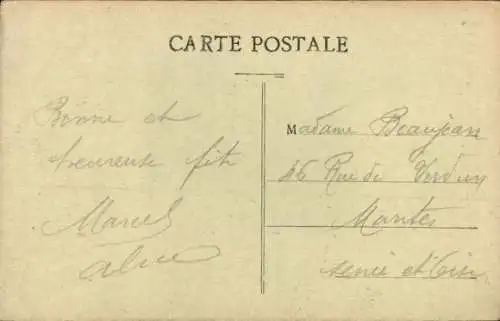 CARTE POSTALE
Bonne et
heureuse fête
Marcel
Alice
Madame Beaujean
46 Rue de Verdun
Mantes
Seine et Oise